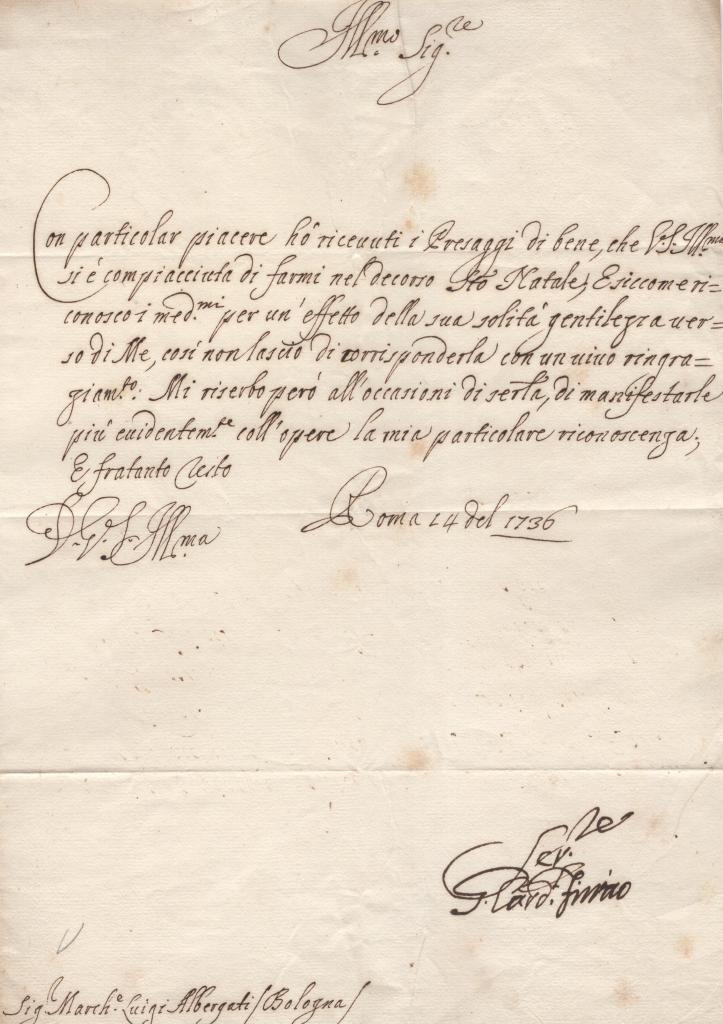 Ill.mo Sig.re
Con particolar piacere hò ricevuti i Presaggi di bene, che V.S. Ill.ma
si è compiacciuta di farmi nel decorso Sto Natale; E siccome ri=
conosco i med.mi per un' effetto della sua solita gentilezza ver=
so di Me, così non lascio di corrisponderla con un vivo ringra=
ziam.to: Mi riserbo però all' occasioni di serla, di manifestarle
più evidentem.te coll' opere la mia particolare riconoscenza;
E, fratanto resto
D. V. S. Ill.ma
Roma 14 del 1736
Ser.re
G. Card. Firrao
Sig.r March.e Luigi Albergati / Bologna /